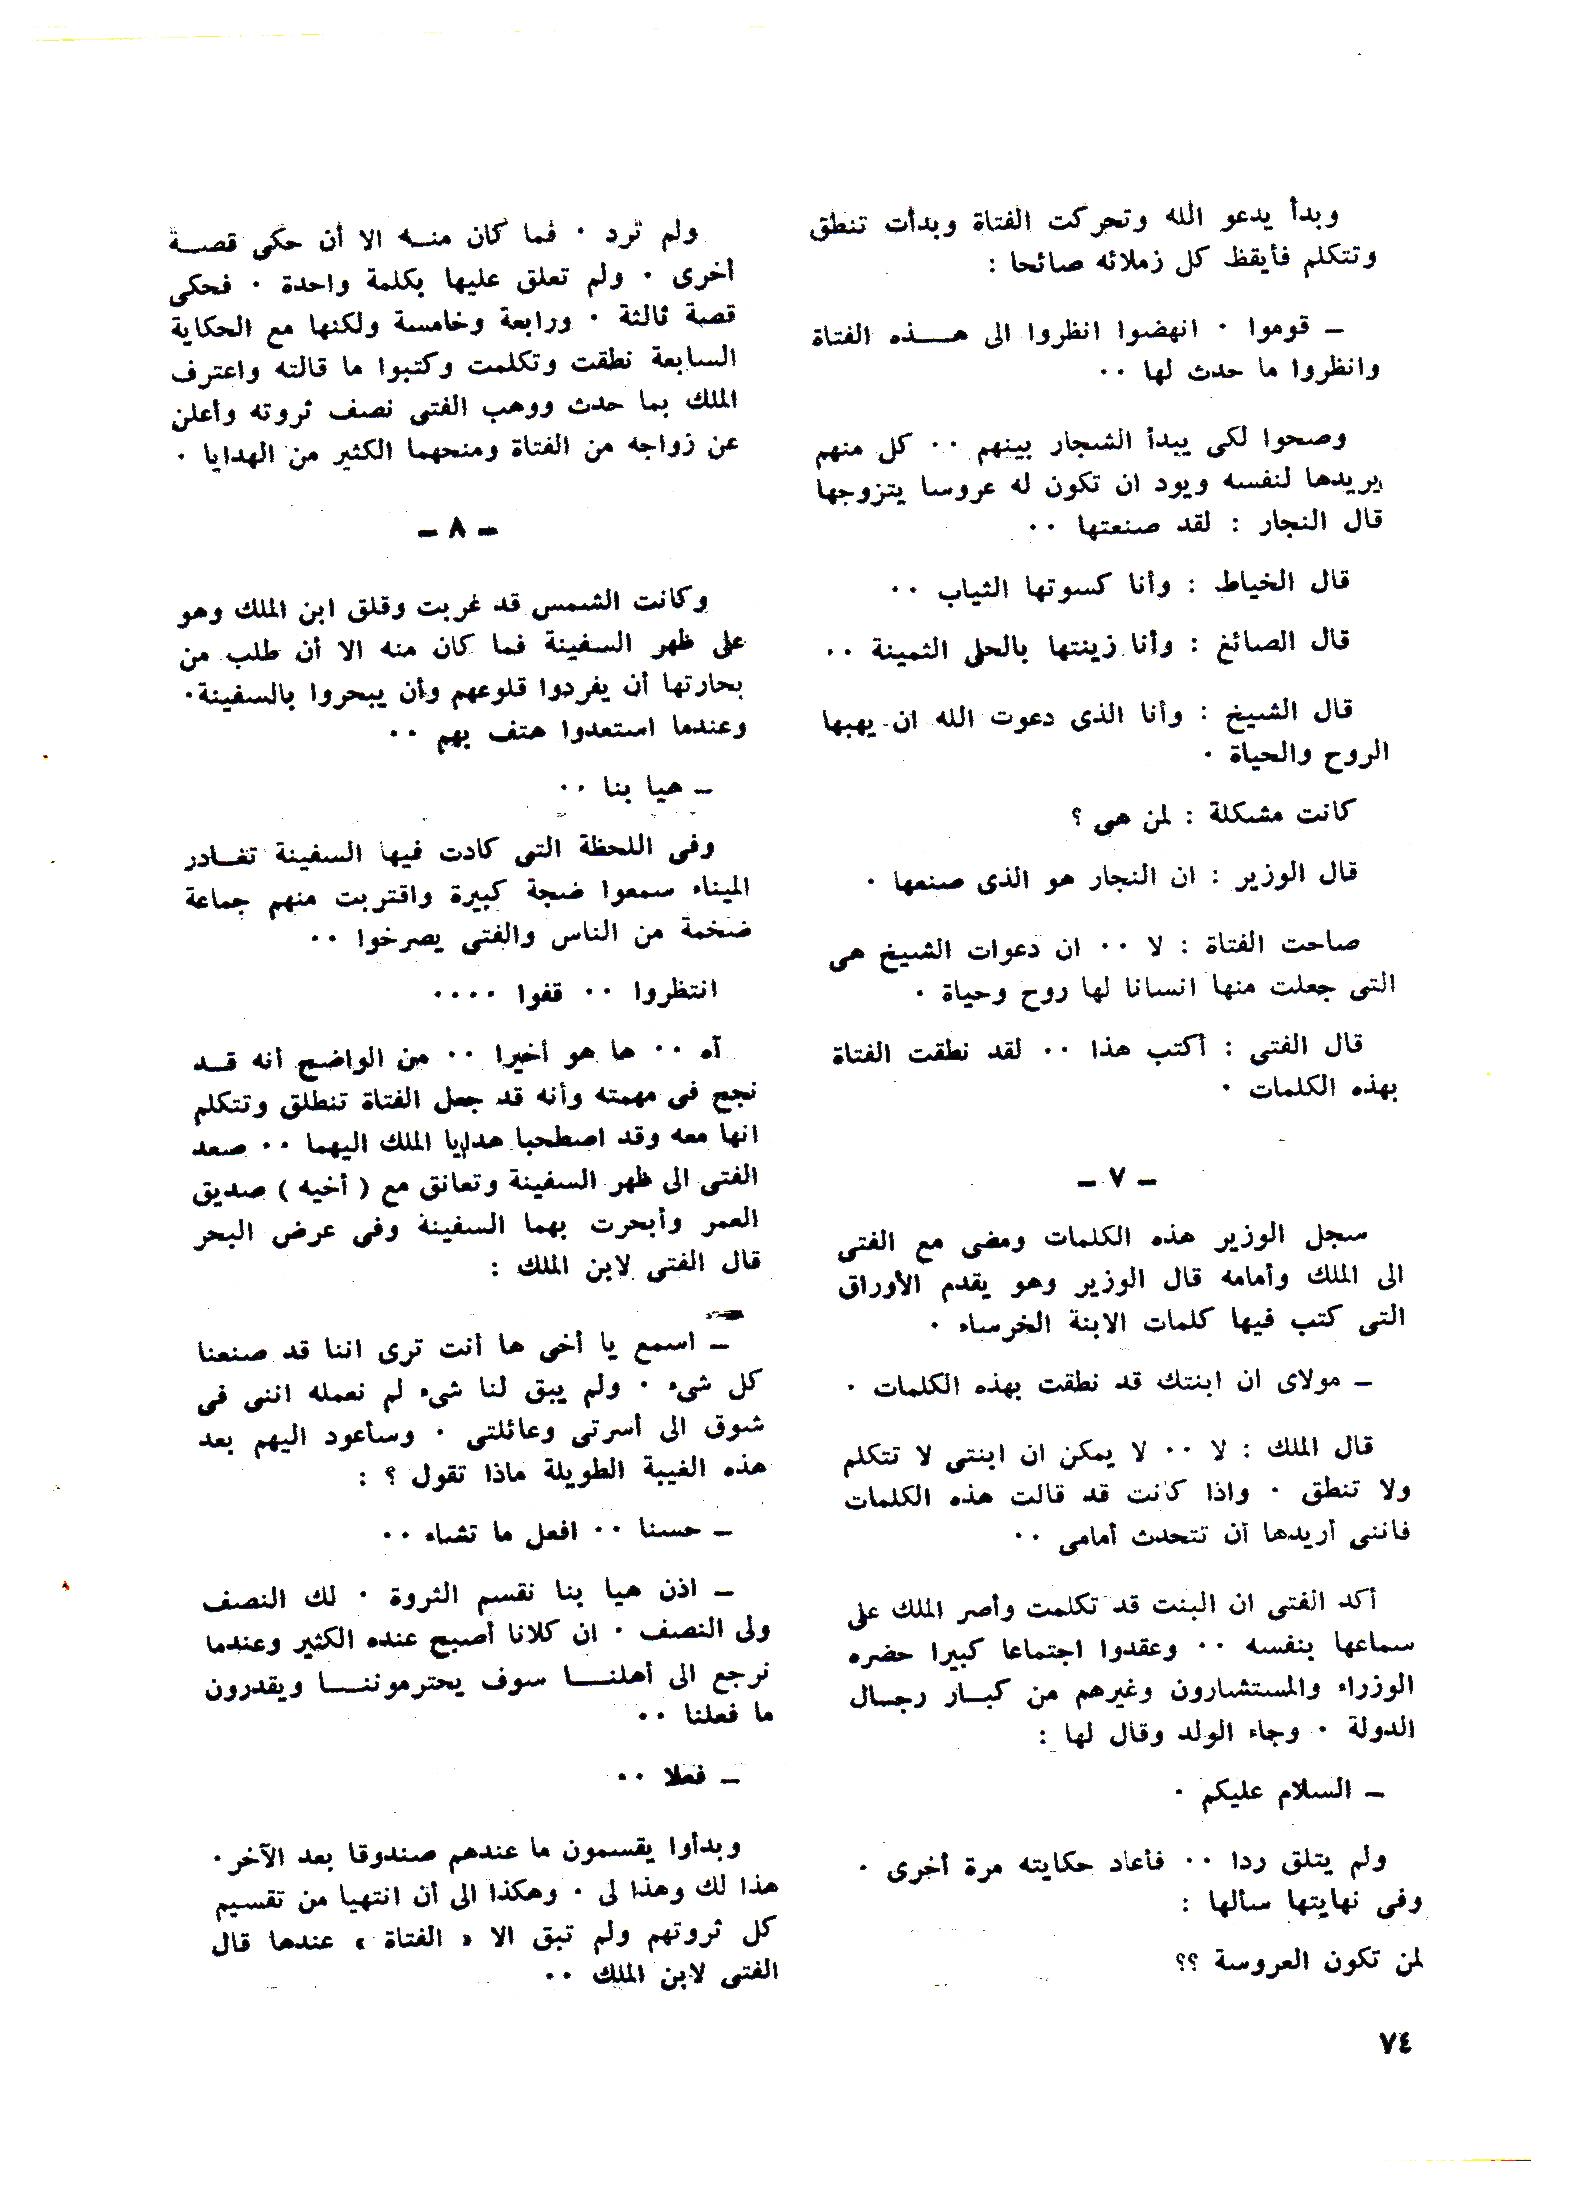 وبدأ يدعو الله وتحركت الفتاة وبدأت تنطق
وتتكلم فأيقظ كل زملائه صائحا :
ـ قوموا ٠ انهضوا انظروا الى هـــذه الفتاة
وانظروا ما حدث لها ٠٠
وصحوا لكى يبدأ الشجار بينهم ٠٠ كل منهم
يريدها لنفسه ويود ان تكون له عروسا يتزوجها
قال النجار : لقد صنعتها ٠٠
قال الخياط : وأنا كسوتها الثياب ٠٠
قال الصائغ : وأنا زينتها بالحلى الثمينة ٠٠
قال الشيخ : وأنا الذى دعوت الله ان يهبها
الروح والحياة ٠
كانت مشكلة : لمن هى ؟
قال الوزير : ان النجار هو الذى صنعها ٠
صاحت الفتاة : لا ٠٠ ان دعوات الشيخ هى
التى جعلت منها انسانا لها روح وحياة ٠
قال الفتى : أكتب هذا ٠٠ لقد نطقت الفتاة
بهذه الكلمات ٠
ـ ٧ ـ
سجل الوزير هذه الكلمات ومضى مع الفتى
الى الملك وأمامه قال الوزير وهو يقدم الأوراق
التى كتب فيها كلمات الابنة الخرساء ٠
ـ مولاى ان ابنتك قد نطقت بهذه الكلمات ٠
قال الملك : لا ٠٠ لا يمكن ان ابنتى لا تتكلم
ولا تنطق ٠ واذا كانت قد قالت هذه الكلمات
فاننى أريدها أن تتحدث أمامى ٠٠
أكد الفتى ان البنت قد تكلمت وأصر الملك على
سماعها بنفسه ٠٠ وعقدوا اجتماعا كبيرا حضره
الوزراء والمستشارون وغيرهم من كبـار رجـال
الدولة ٠ وجاء الولد وقال لها :
ـ السلام عليكم ٠
ولم يتلق ردا ٠٠ فأعاد حكايته مرة أخرى ٠
وفى نهايتها سألها :
لمن تكون العروسة ؟؟
ولم ترد ٠ فما كان منـه الا أن حكى قصـة
أخرى ٠ ولم تعلق عليها بكلمة واحدة ٠ فحكى
قصة ثالثة ٠ ورابعة وخامسة ولكنها مع الحكاية
السابعة نطقت وتكلمت وكتبوا ما قالته واعترف
الملك بما حدث ووهب الفتى نصف ثروته وأعلن
عن زواجه من الفتاة ومنحهما الكثير من الهدايا ٠
ـ ٨ ـ
وكانت الشمس قد غربت وقلق ابن الملك وهو
على ظهر السفينة فما كان منه الا أن طلب من
بحارتها أن يفردوا قلوعهم وأن يبحروا بالسفينة٠
وعندما استعدوا هتف بهم ٠٠
ـ هيا بنا ٠٠
وفى اللحظة التى كادت فيها السفينة تغـادر
الميناء سمعوا ضجة كبيرة واقتربت منهم جماعة
ضخمة من الناس والفتى يصرخوا ٠٠
انتظروا ٠٠ قفوا ٠٠٠٠
آه ٠٠ ها هو أخيرا ٠٠ من الواضح أنه قـد
نجح فى مهمته وأنه قد جعل الفتاة تنطلق وتتكلم
انها معه وقد اصطحبا هدايا الملك اليهما ٠٠ صعد
الفتى الى ظهر السفينة وتعانق مع ( أخيه ) صديق
العمر وأبحرت بهما السفينة وفى عرض البحر
قال الفتى لابن الملك :
ـ اسمع يا أخى ها أنت ترى اننا قد صنعنا
كل شىء ٠ ولم يبق لنا شىء لم نعمله اننى فى
شوق الى أسرتى وعائلتى ٠ وسأعود اليهم بعد
هذه الغيبة الطويلة ماذا تقول ؟ :
ـ حسنا ٠٠ افعل ما تشاء ٠٠
ـ اذن هيا بنا نقسم الثروة ٠ لك النصف
ولى النصف ٠ ان كلانا أصبح عنده الكثير وعندما
نرجع الى أهلنـــا سوف يحترموننـــا ويقدرون
ما فعلنا ٠٠
ـ فعلا ٠٠
وبدأوا يقسمون ما عندهم صندوقا بعد الآخر٠
هذا لك وهذا لى ٠ وهكذا الى أن انتهيا من تقسيم
كل ثروتهم ولم تبق الا « الفتاة » عندها قال
الفتى لابن الملك ٠٠
٧٤